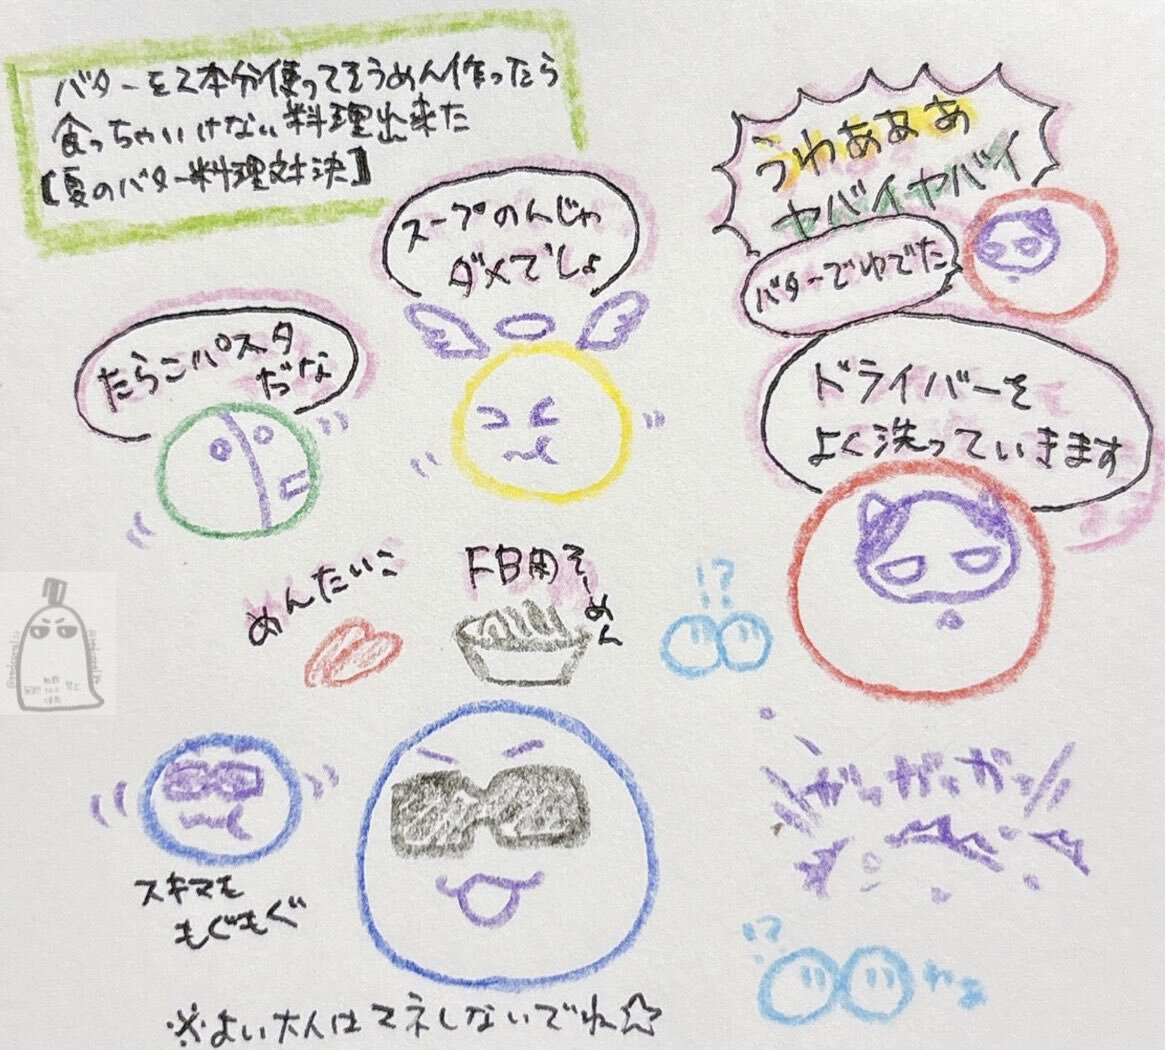 バターを2本分使ってそうめん作ったら
食っちゃいけない料理出来た
【夏のバター料理対決】
スープのんじゃ
ダメでしょ
うわあああ
ヤバイヤバイ
バターでゆでた
たらこパスタ
だな
ドライバーを
よく洗っていきます
めんたいこ
FB用そーめん
!?
スキマも
もぐもぐ
ガッガッガッ
!?
わぁ
※よい大人はマネしないでね☆